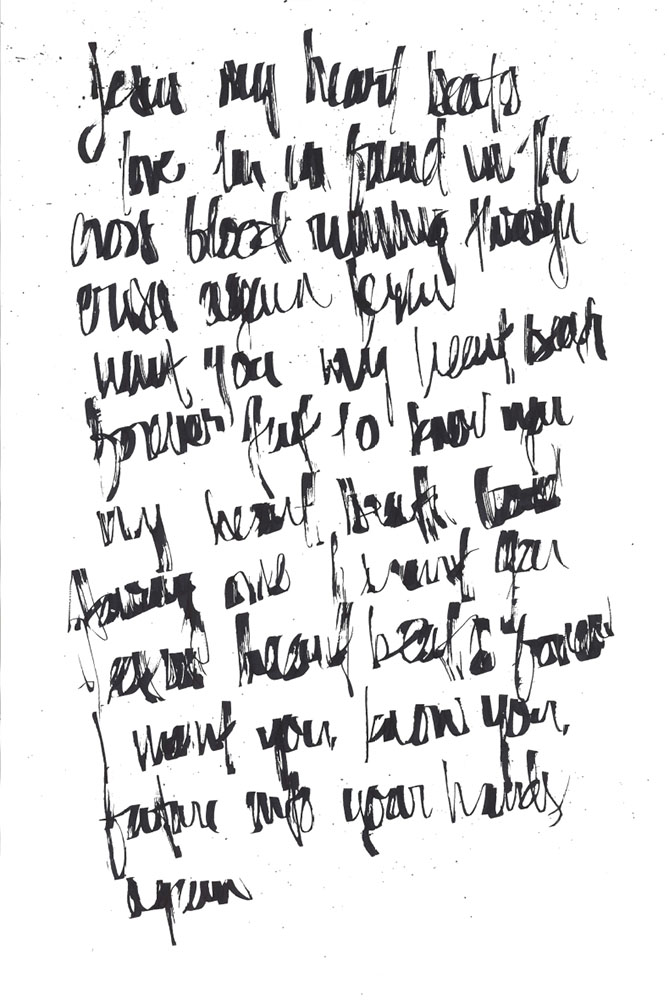 Jesus my heart beats
love I'm found in the
cross blood running through
cross again Jesus
want you my heart beats
forever just to know you
my heart beats
one I want you
heart beats forever
I want you, know you,
future into your hands
again